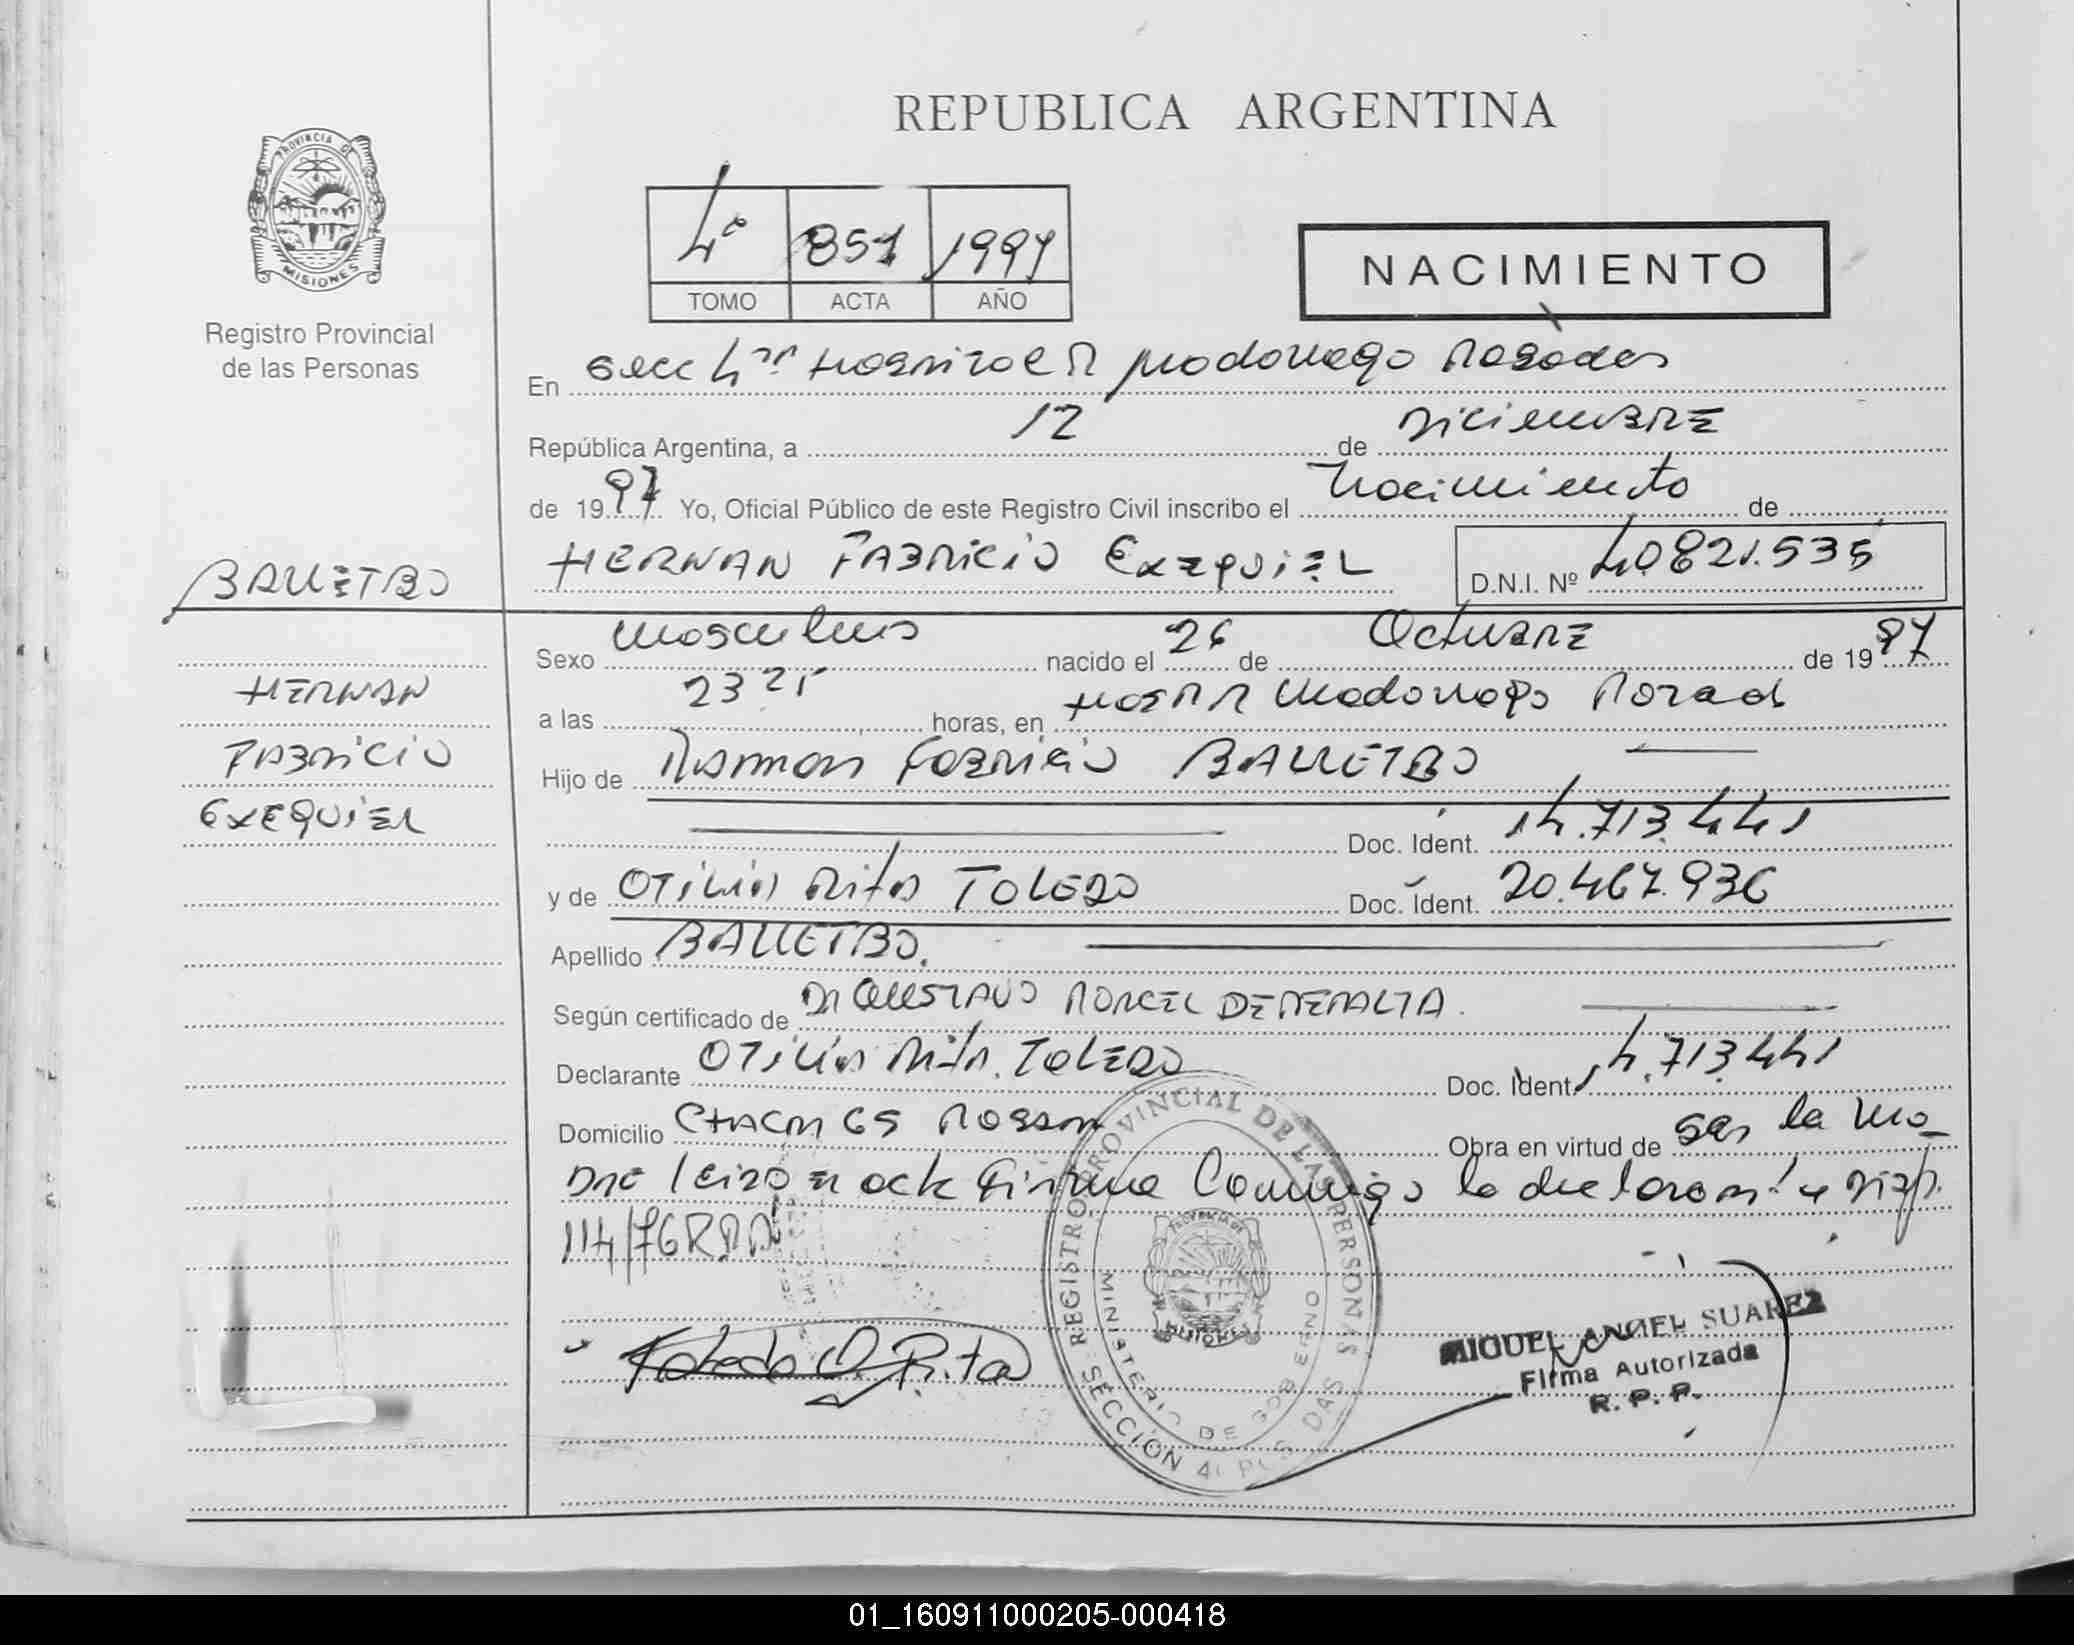 REPUBLICA ARGENTINA
PROVINCIA DE
MISIONES
Registro Provincial
de las Personas
4º 851 1997
TOMO ACTA AÑO
NACIMIENTO
En Secc 4ta Hospital R Madariaga Posadas
República Argentina, a 12 de Diciembre
de 1997 Yo, Oficial Público de este Registro Civil inscribo el Nacimiento de
HERNAN FABRICIO EXEQUIEL D.N.I. Nº 40.821.535
BALLETBO
HERNAN
FABRICIO
EXEQUIEL
Sexo Masculino nacido el 26 de Octubre de 1997
a las 23 25 horas, en Hosp R Madariaga Posadas
Hijo de Ramon Fabricio BALLETBO
Doc. Ident. 14.713.441
y de Otilia Rita TOLEDO Doc. Ident. 20.467.936
Apellido BALLETBO.
Según certificado de Dr GUSTAVO MORCEL DE PERALTA.
Declarante OTILIA Rita. TOLEDO Doc. Ident. 14.713.441
Domicilio CHACRA 65 Obra en virtud de ser la ma-
dre leida el acta firma Conmigo la declarante disp.
114/76 RPP
REGISTRO PROVINCIAL DE LAS PERSONAS
MINISTERIO DE GOBIERNO
PROVINCIA DE
MISIONES
SECCIÓN 4ta POSADAS
Toledo O. Rita
MIGUEL ANGEL SUAREZ
Firma Autorizada
R. P. P.
01_160911000205-000418